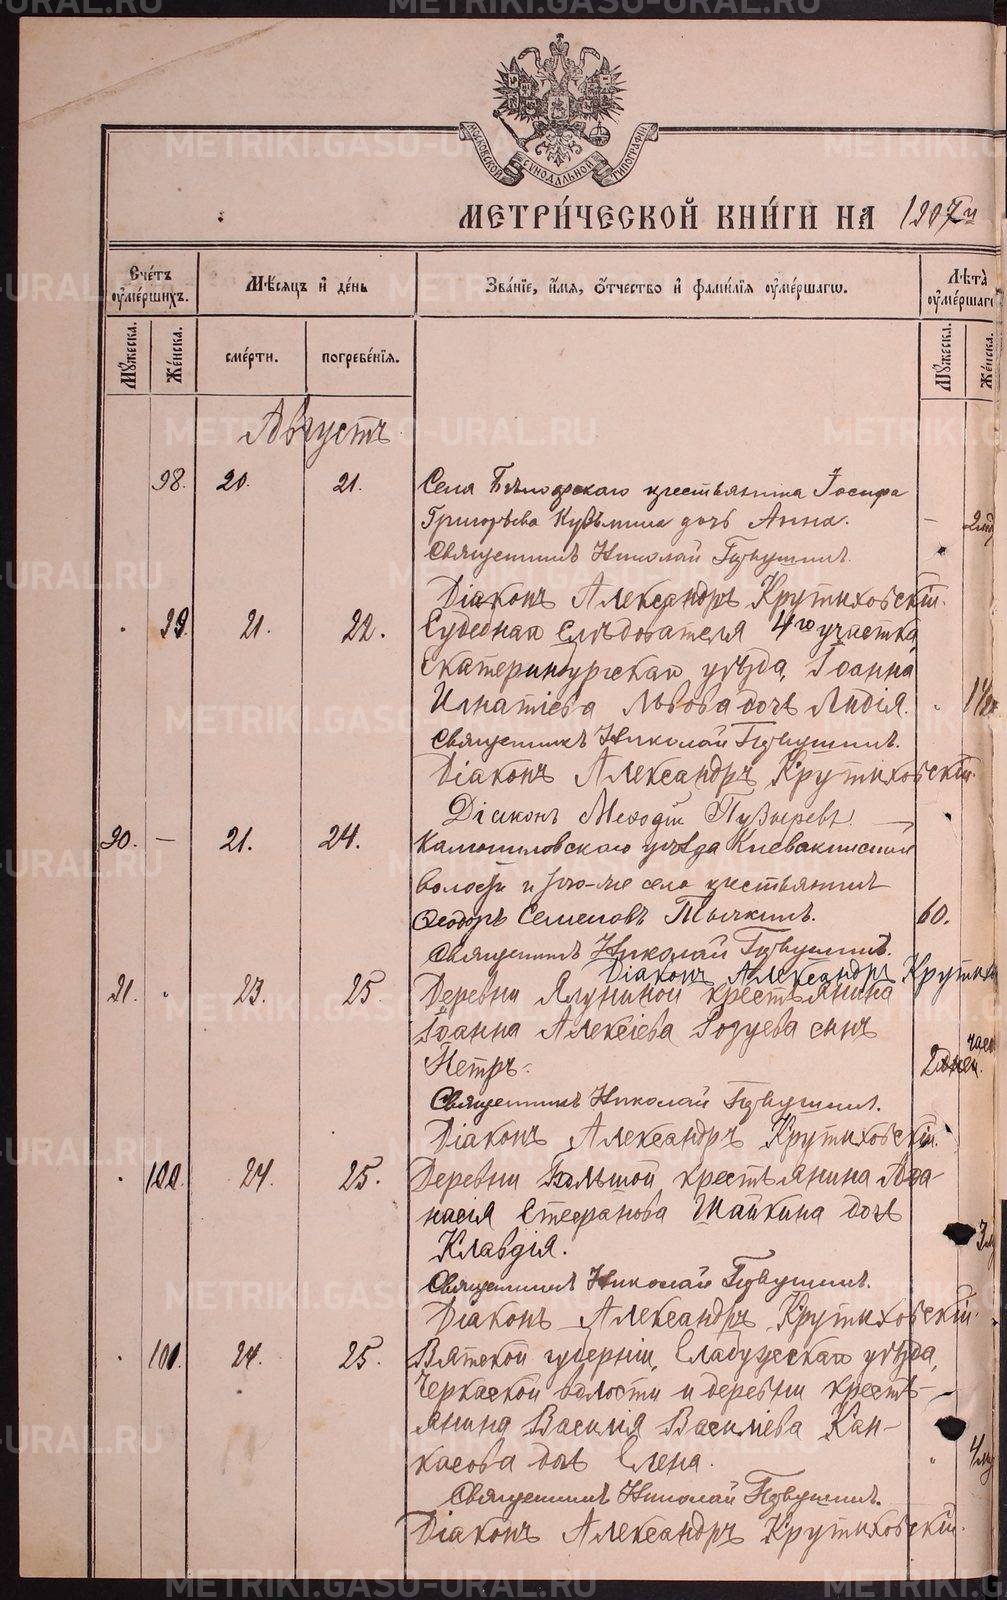 МОСКОВСКОЙ СѴНОДАЛЬНОЙ ТИПОГРАФИИ
МЕТРИ́ЧЕСКОЙ КНИ́ГИ НА 1907 г
Сче́тъ ᲂу҆ме́ршихъ. Мѣ́сяцъ и҆ де́нь Зва́нїе, и҆́мя, ѻ҆́тчество и҆ фамѝлїя ᲂу҆ме́ршагѡ. Лѣ́та ᲂу҆ме́ршагѡ
Мꙋ́жеска. Же́нска. сме́рти. погребе́нїя. Мꙋ́жеска. Же́нска.
Августъ
98. 20. 21. Села Бѣлоярскаго крестьянина Іосифа
Григорьева Кузьмина дочь Анна. –
Священникъ Николай
Діаконъ Александръ Крутиховскій.
99. 21. 22. Судебнаго Слѣдователя 4го участка
Екатеринбургскаго уѣзда, Іоанна
Игнатіева Львова дочь Лидія.
Священникъ Николай
Діаконъ Александръ Крутиховскій.
Діаконъ Меѳодій Пузыревъ.
90. – 21. 24. Камышловскаго уѣзда
волости и того-же села крестьянинъ
Ѳеодоръ Семеновъ Тычкинъ. 60.
Священникъ Николай
Діаконъ Александръ Крутихо
91. 23. 25. Деревни Ялуниной крестьянина
Іоанна Алексіева сынъ
Петръ.
Священникъ Николай
Діаконъ Александръ Крутиховскій.
100. 24. 25. Деревни Большой крестьянина Аѳа
насія Стефанова Шайкина дочь
Клавдія.
Священникъ Николай
Діаконъ Александръ Крутиховскій.
24. 25. Вятской губерніи, Елабужскаго уѣзда,
Черкаской волости и деревни кресть-
янина Василія Василіева Кан-
касова дочь Елена.
Священникъ Николай
Діаконъ Александръ Крутиховскій.
METRIKI.GASU-URAL.RU